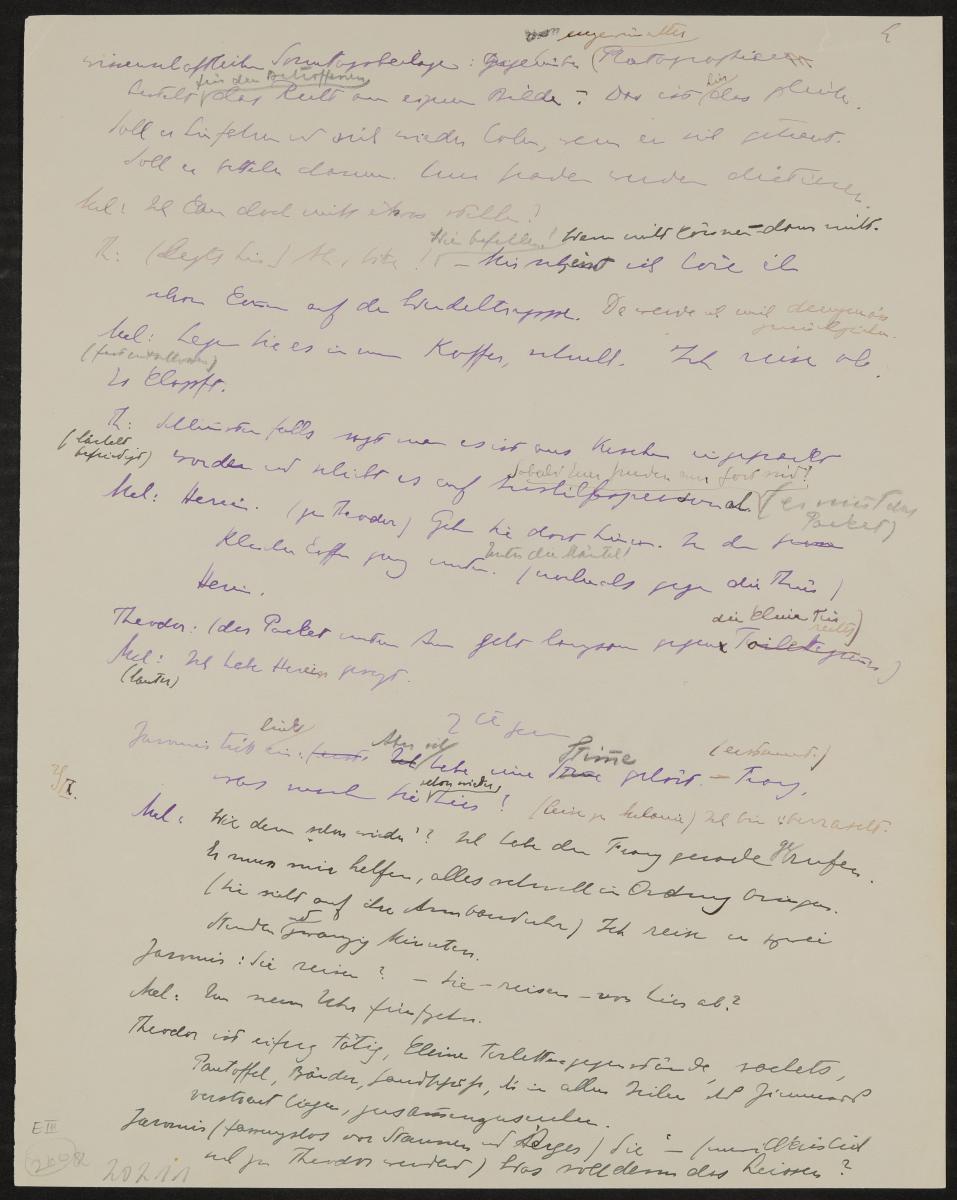 ungewünschter
wissenschaftlichen Sonntagsbeilage: Photographie
für den Betroffenen
besteht das Recht am eignen Bilde? Das ist hier das gleiche.
Soll er hinfahren und sich wieder holen, wenn er sich getraut.
Soll er bitteln darum. Euer Gnaden werden dictieren.
Mel: Ich kann doch nicht etwas stehlen?
Wie befehlen! Wenn nicht können – dann nicht.
Th: (legts hin) Ah, bitte! – Mir scheint ich höre ihn
schon kommen auf der Wendeltreppe. Da werde ich mich demgemäss
zurückziehen.
Mel: Legen Sie es in meinen Koffer, schnell. Ich reise ab.
(fest entschlossen)
Es klopft.
Th: Schlimmstenfalls sagt man es ist aus Versehen eingepackt
(lächelt
befriedigt)
worden und schickt es auf
Sobald Euer Gnaden nur fort sind!
(er nimmt das
Packet)
Mel: Herein. (zu Theodor) Gehn Sie dort hinein. In den
kleinen Koffer ganz unten. (nochmals gegen die Thür)
Unter die Mäntel!
Herein.
die kleine Tür
rechts)
Theodor: (das Packet unterm Arm geht langsam gegen Toilettezimmer)
Mel: Ich habe Herein gesagt.
(lauter)
2te Scene
links
Aber ich
Stimme
(erstaunt.)
Jaromir tritt ein. Ich habe eine Stimme gehört – Franz,
schon wieder
was machen Sie hier? (leise zu Melanie) Ich bin überrascht.
Mel: Wie denn schon wieder? Ich habe den Franz gerade gerufen.
Er muss mir helfen, alles schnell in Ordnung bringen.
(Sie sieht auf ihre Armbanduhr) Ich reise in zwei
Stunden zwanzig Minuten.
Jaromir: Sie reisen? – Sie – reisen – von hier ab?
Mel: Um neun Uhr fünfzehn.
Theodor ist eifrig tätig, kleine Toilettengegenstände, sachets,
Pantoffel, Bänder, Handschuhe, die in allen Teilen des Zimmers
verstreut liegen, zusammenzusuchen.
Jaromir (fassungslos vor Staunen und Ärger) Sie –
sich zu Theodor wendend) Was soll denn das heissen?
E III
20211